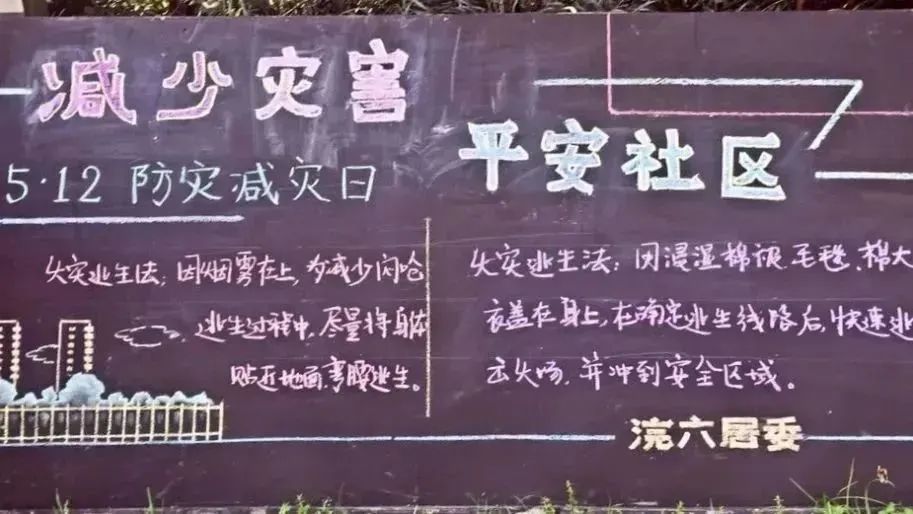 减少灾害
5·12 防灾减灾日
火灾逃生法：因烟雾在上，为减少闪呛
逃生过程中，尽量将身体
贴近地面，弯腰逃生。
平安社区
火灾逃生法：用浸湿棉被、毛毯、棉大
衣盖在身上，在确定逃生线路后，快速逃
去火场，并冲到安全区域。
浣六居委